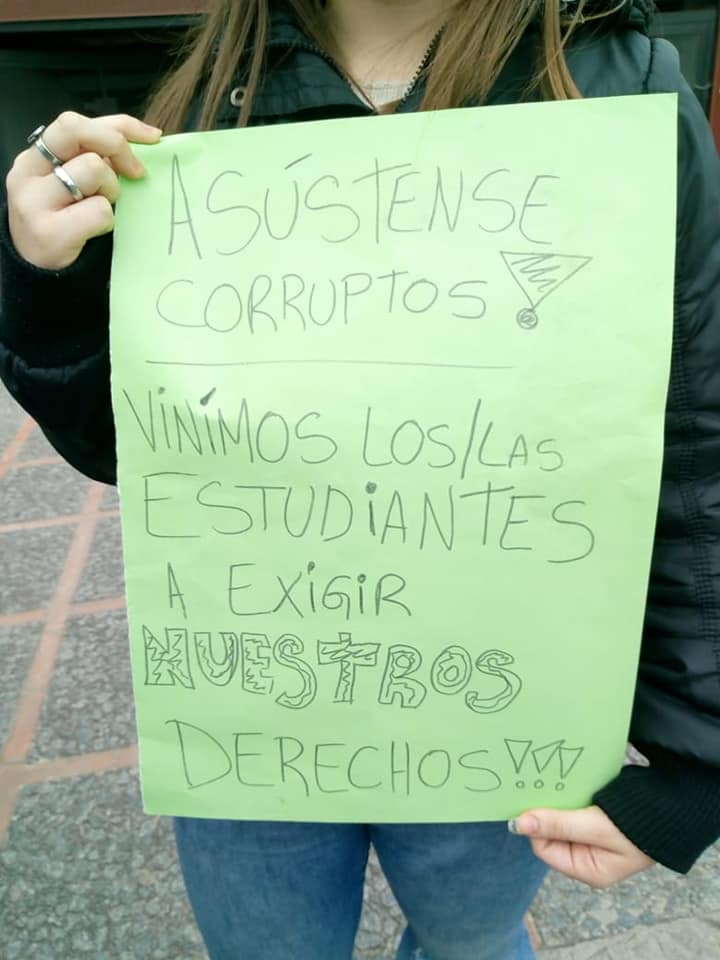 ASÚSTENSE
CORRUPTOS!
VINÍMOS LOS/LAS
ESTUDIANTES
A EXIGIR
NUESTROS
DERECHOS!!!